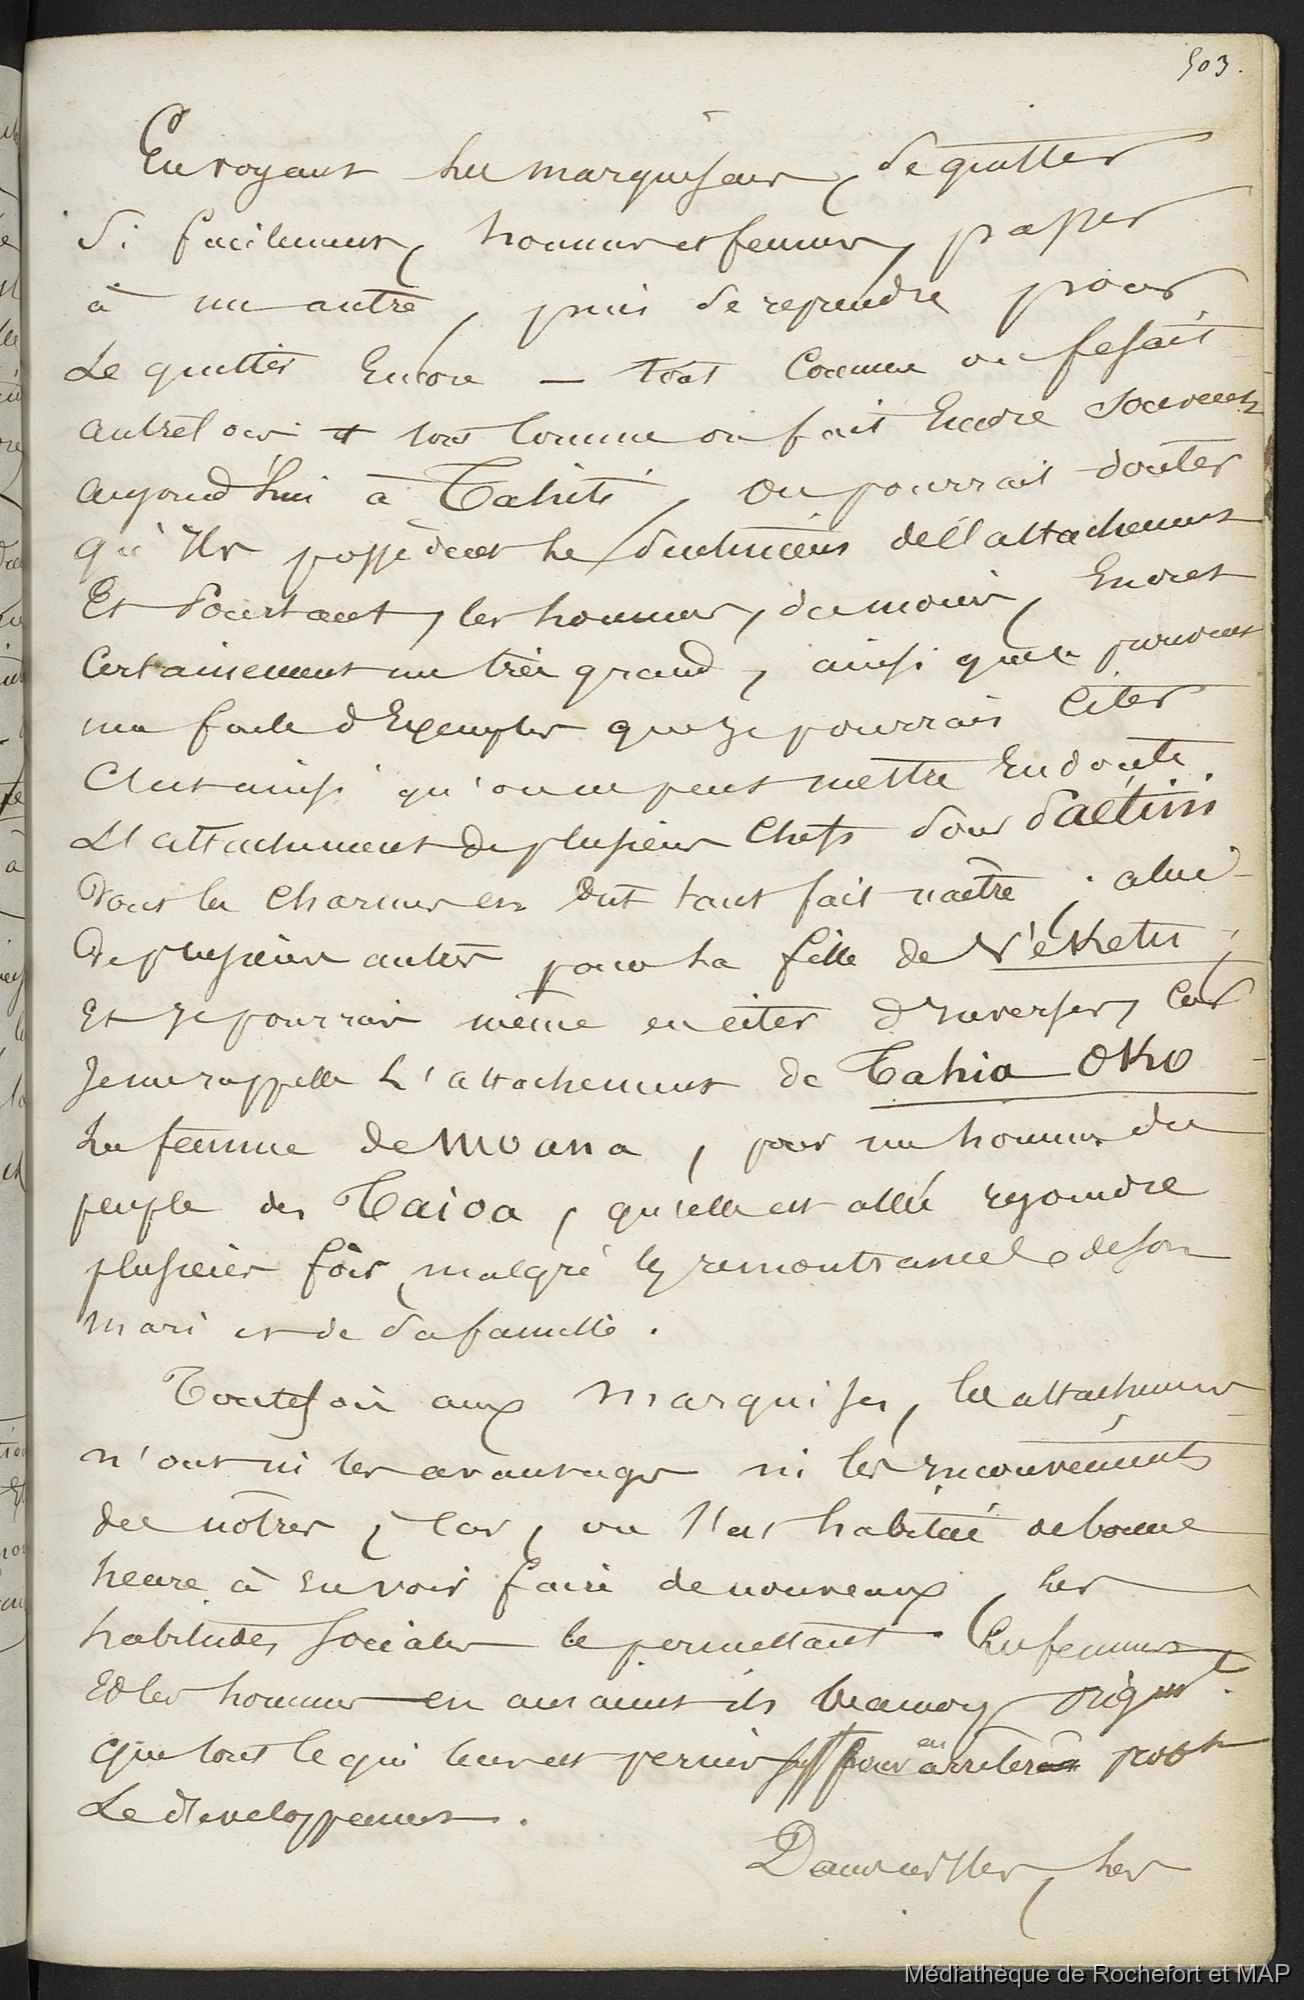 503.
En voyant les marquisiens, se quitter
si facilement, hommes et femmes, passer
à un autre, puis se reprendre pour
se quitter encore — tout comme on fesait
autrefois et tout comme on fait encore souvent
aujourd'hui à Tahiti, on pourrait douter
qu'ils possèdent le sentiment de l'attachement
Et Pourtant, les hommes, du moins, en ont
certainement un très grand, ainsi que le prouvent
une foule d'Exemples que je pourrais citer
C'est ainsi qu'on ne peut mettre en doute
L'attachement de plusieurs chefs pour Paétini
Dont les charmes en ont tant fait naître ; celui
De plusieurs autres pour la fille de Vékétu ;
Et je pourrais même en citer d'inverses, car
Je me rappelle l'attachement de Tahia Oko
La femme de Moana, pour un homme du
peuple des Taioa, qu'elle est allée rejoindre
plusieurs fois, malgré les remontrances de son
mari et de sa famille.
Toutefois aux Marquises, les attachements
n'ont ni les avantages ni les inconvénients
des nôtres, car, on s'est habitué de bonne
heure à en voir faire de nouveaux, les
habitudes sociales le permettant. Les femmes
Et les hommes en auraient ils beaucoup
que tout ce qui leur est permis pour en arrêter probt
Le développement.
Dans ces îles, les
Médiathèque de Rochefort et MAP